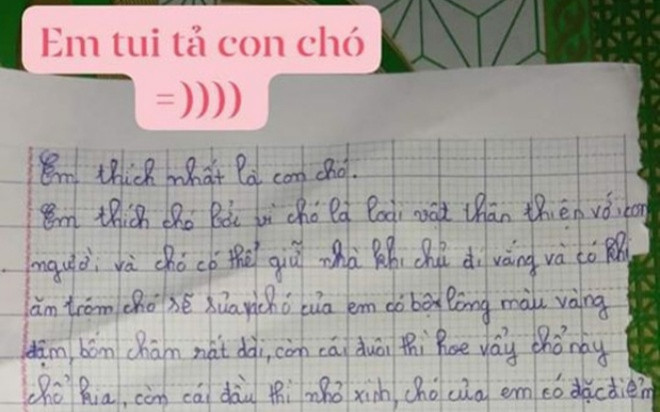 Em tui tả con chó
=))))
Em thích nhất là con chó.
Em thích chó bởi vì chó là loài vật thân thiện với con
người và chó có thể giữ nhà khi chủ đi vắng và có khi
ăn trộm chó sẽ sủa chó của em có bộ lông màu vàng
đậm, bốn chân rất dài, còn cái đuôi thì hoe vẩy chổ này
chổ kia, còn cái đầu thì nhỏ xinh, chó của em có đặc điểm